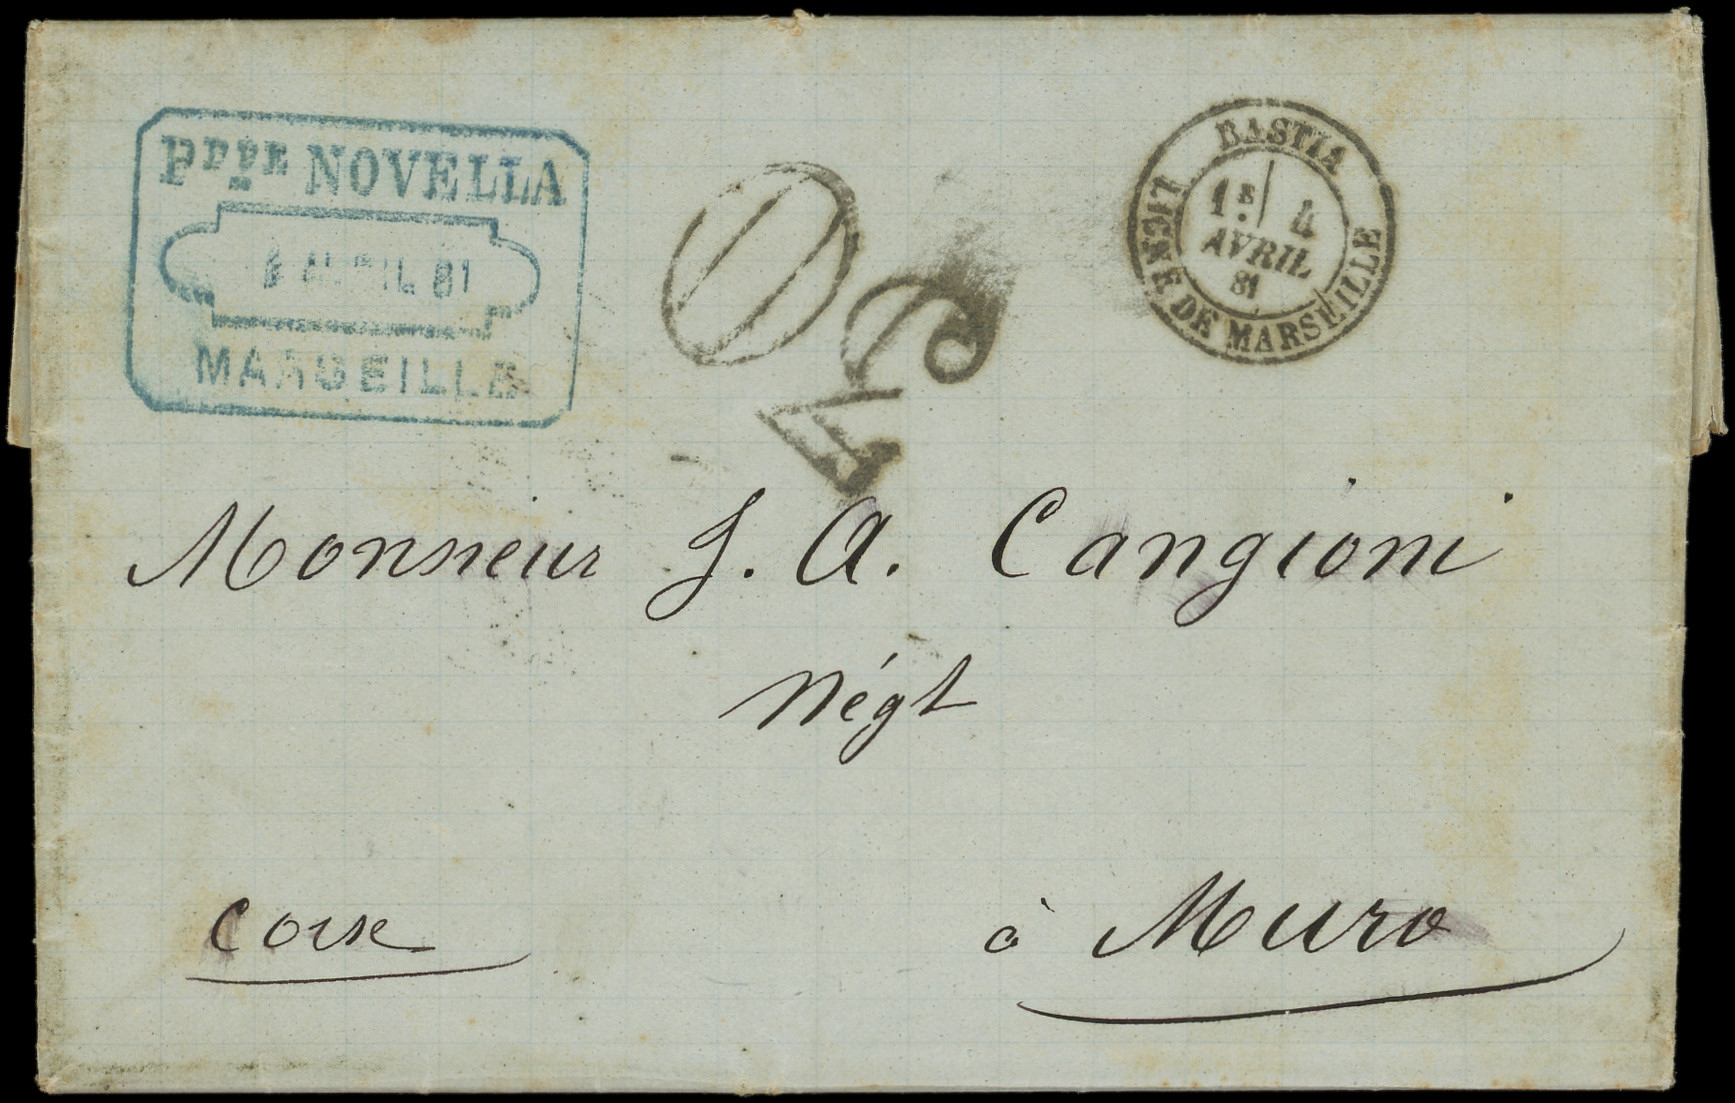 Pppe NOVELLA
AVRIL 81
MARSEILLE
BASTIA
1E/ 4
AVRIL
81
LIGNE DE MARSEILLE
Monsieur J. A. Cangioni
Négt
Corse
à Muro